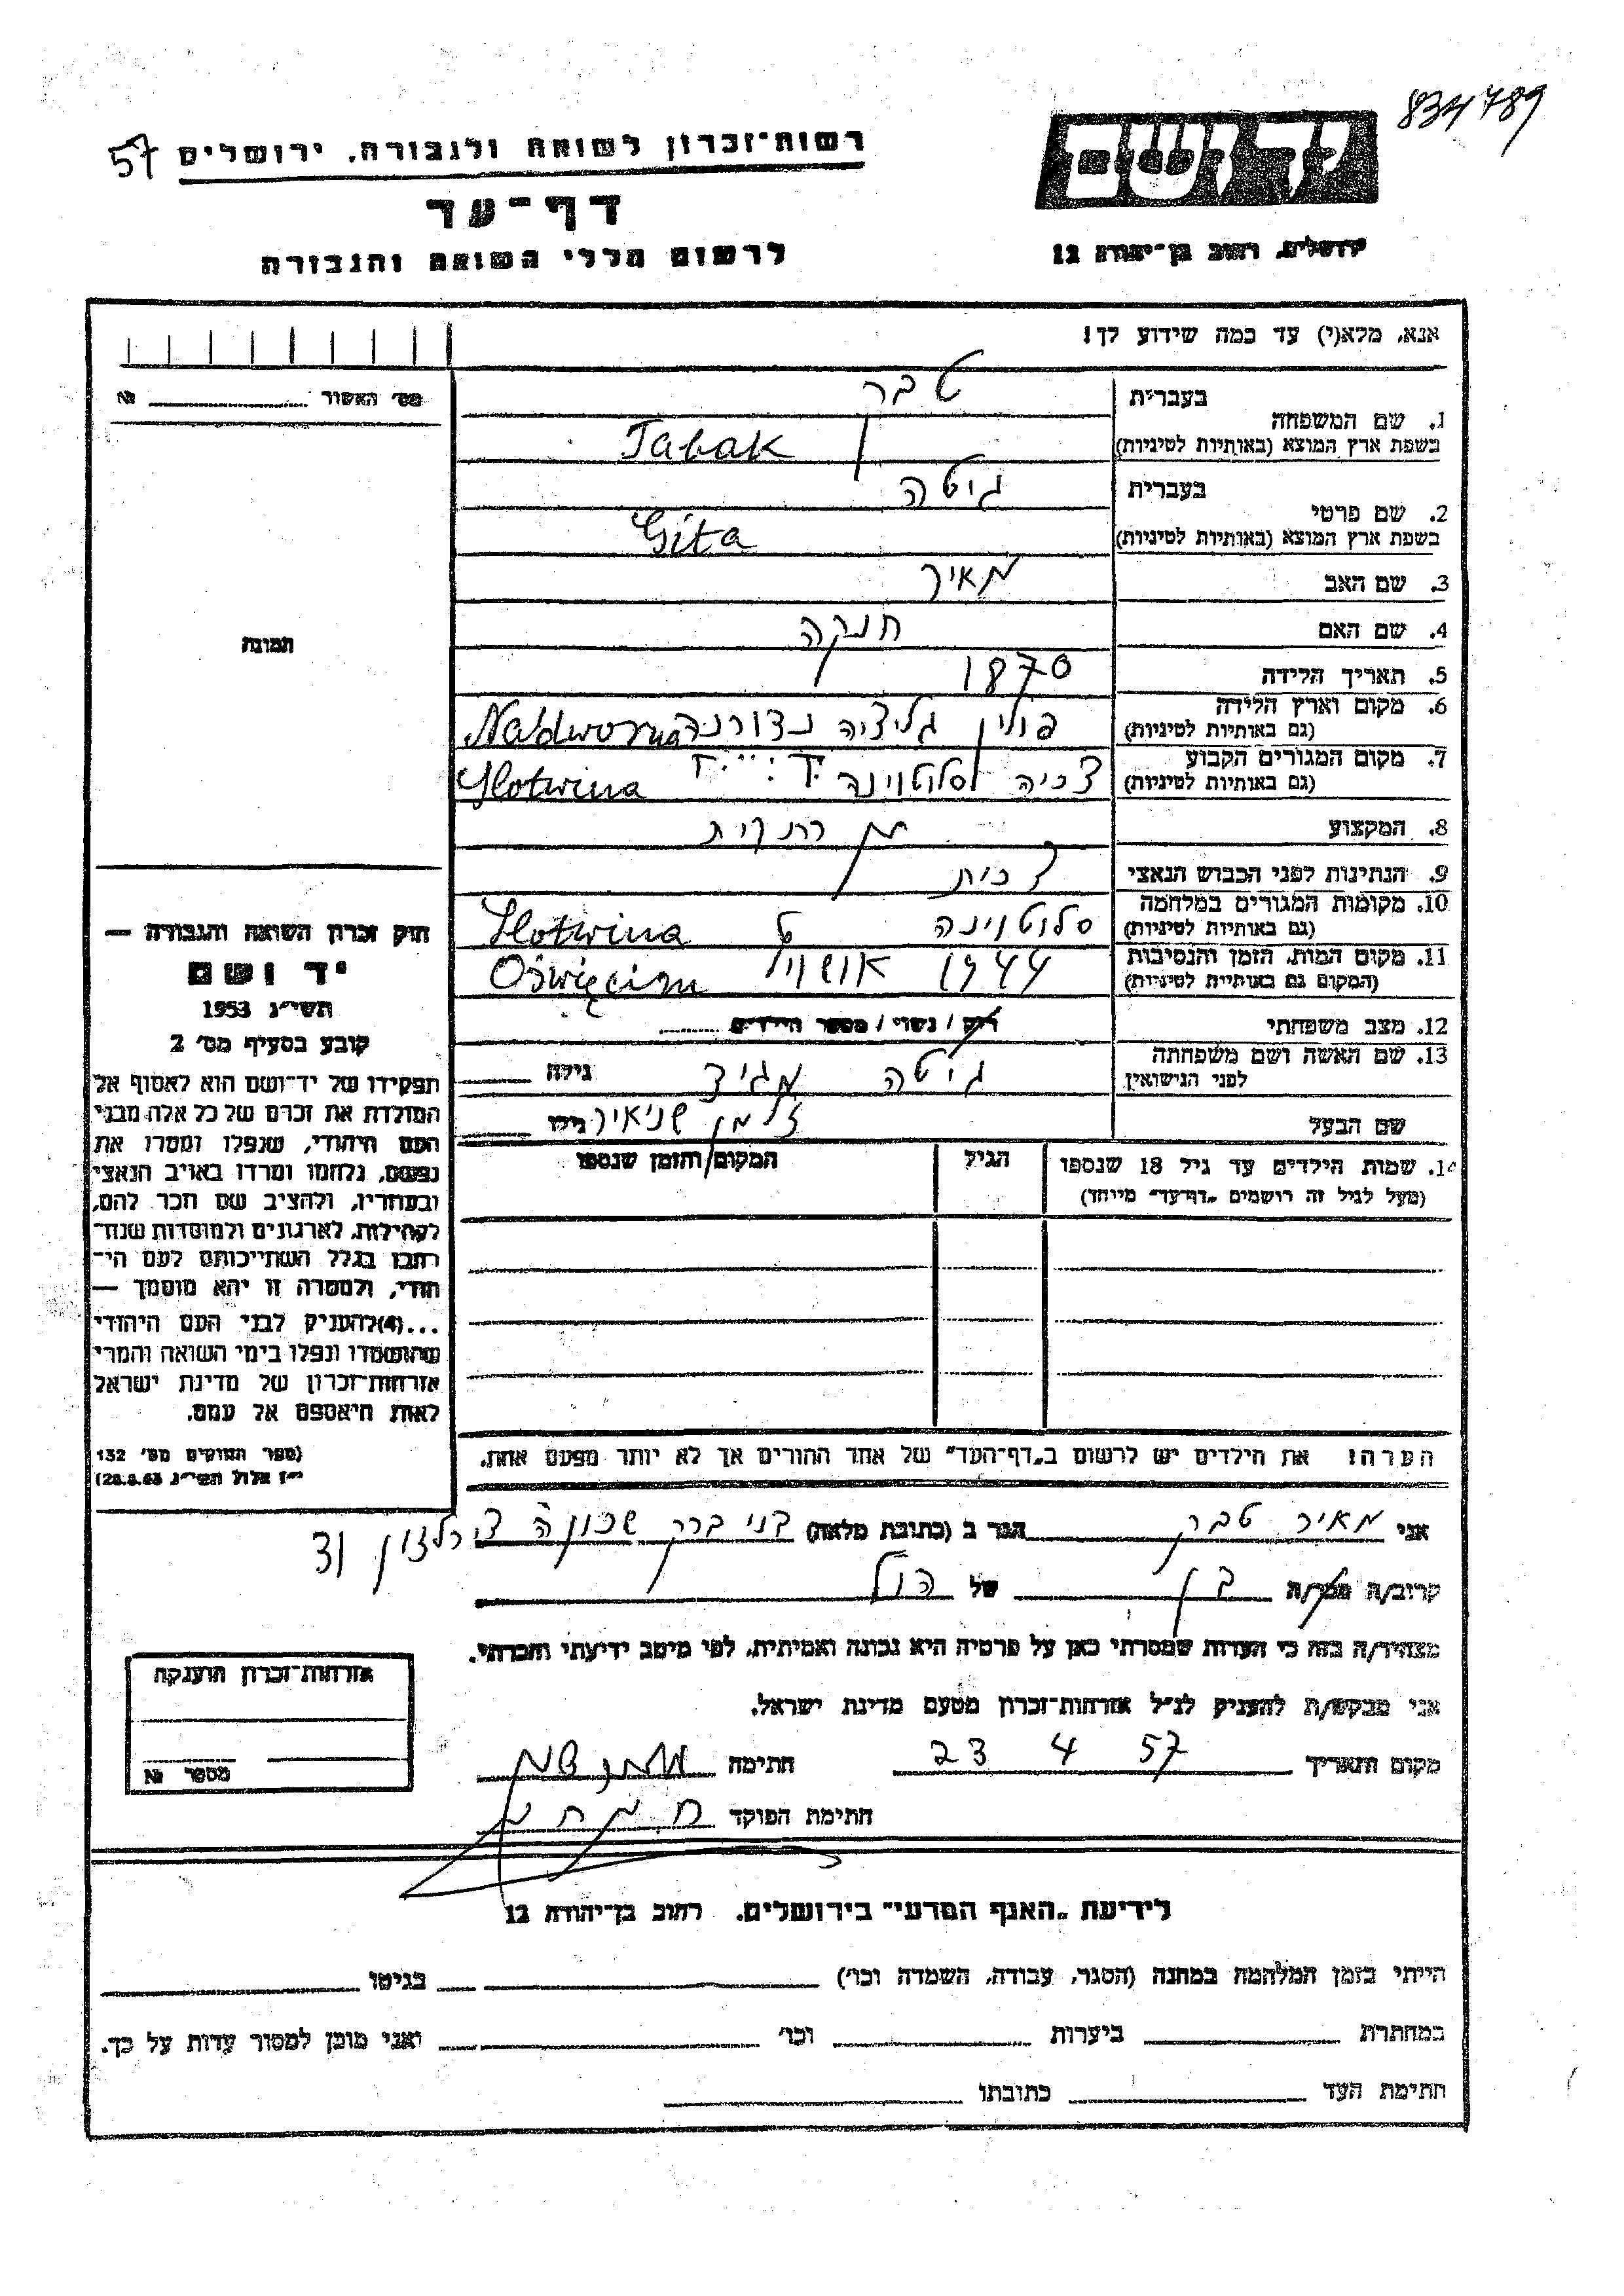 834789
יד ושם
ירושלים, רחוב בן־יהודה 12
רשות־זכרון לשואה ולגבורה, ירושלים 57
דף־עד
לרשום חללי השואה והגבורה
אנא, מלא(י) עד כמה שידוע לך!
1. שם המשפחה בעברית טבק
בשפת ארץ המוצא (באותיות לטיניות) Tabak
2. שם פרטי בעברית גיטה
בשפת ארץ המוצא (באותיות לטיניות) Gita
3. שם האב מאיר
4. שם האם חנקה
5. תאריך הלידה 1870
6. מקום וארץ הלידה פולין גליציה נדורנה Nadworna
(גם באותיות לטיניות)
7. מקום המגורים הקבוע צ'כיה סלוטוינה Slotwina
(גם באותיות לטיניות)
8. המקצוע
9. הנתינות לפני הכבוש הנאצי צ'כית
10. מקומות המגורים במלחמה סלוטוינה Slotwina
(גם באותיות לטיניות)
11. מקום המות, הזמן והנסיבות 1944 Oświęcim
(המקום גם באותיות לטיניות)
12. מצב משפחתי רוק / נשוי / מספר הילדים
13. שם האשה ושם משפחתה גיטה מגיד גילה
לפני הנישואין
שם הבעל זלמן שניאור גילו
14. שמות הילדים עד גיל 18 שנספו הגיל המקום והזמן שנספו
(מעל לגיל זה רושמים „דף־עד” מיוחד)
הערה! את הילדים יש לרשום ב„דף־העד” של אחד ההורים אך לא יותר מפעם אחת.
מס' האשור №
תמונה
חוק זכרון השואה והגבורה —
יד ושם
תשי״ג 1953
קובע בסעיף מס' 2
תפקידו של יד־ושם הוא לאסוף אל
המולדת את זכרם של כל אלה מבני
העם היהודי, שנפלו ומסרו את
נפשם, נלחמו ומרדו באויב הנאצי
ובעוזריו, ולהציב שם וזכר להם,
לקהילות, לארגונים ולמוסדות שנח־
רבו בגלל השתייכותם לעם הי־
הודי, ולמטרה זו יהא מוסמך —
...(4) להעניק לבני העם היהודי
שהושמדו ונפלו בימי השואה והמרי
אזרחות־זכרון של מדינת ישראל
לאות היאספם אל עמם.
(ספר החוקים מס' 132
י״ז אלול תשי״ג 28.8.53)
אני מאיר טבק הגר ב (כתובת מלאה) בני ברק שכונה
קרוב/ה מכר/ה בן של הנ״ל
מצהיר/ה בזה כי העדות שמסרתי כאן על פרטיה היא נכונה ואמיתית, לפי מיטב ידיעתי והכרתי.
אני מבקש/ת להעניק לנ״ל אזרחות־זכרון מטעם מדינת ישראל.
מקום ותאריך 23 4 57 חתימה
חתימת הפוקד
אזרחות־זכרון הוענקה
מספר №
לידיעת „האגף המדעי” בירושלים, רחוב בן־יהודה 12
הייתי בזמן המלחמה במחנה (הסגר, עבודה, השמדה וכו') בגיטו
במחתרת ביערות וכו' ואני מוכן למסור עדות על כך.
חתימת העד כתובתו